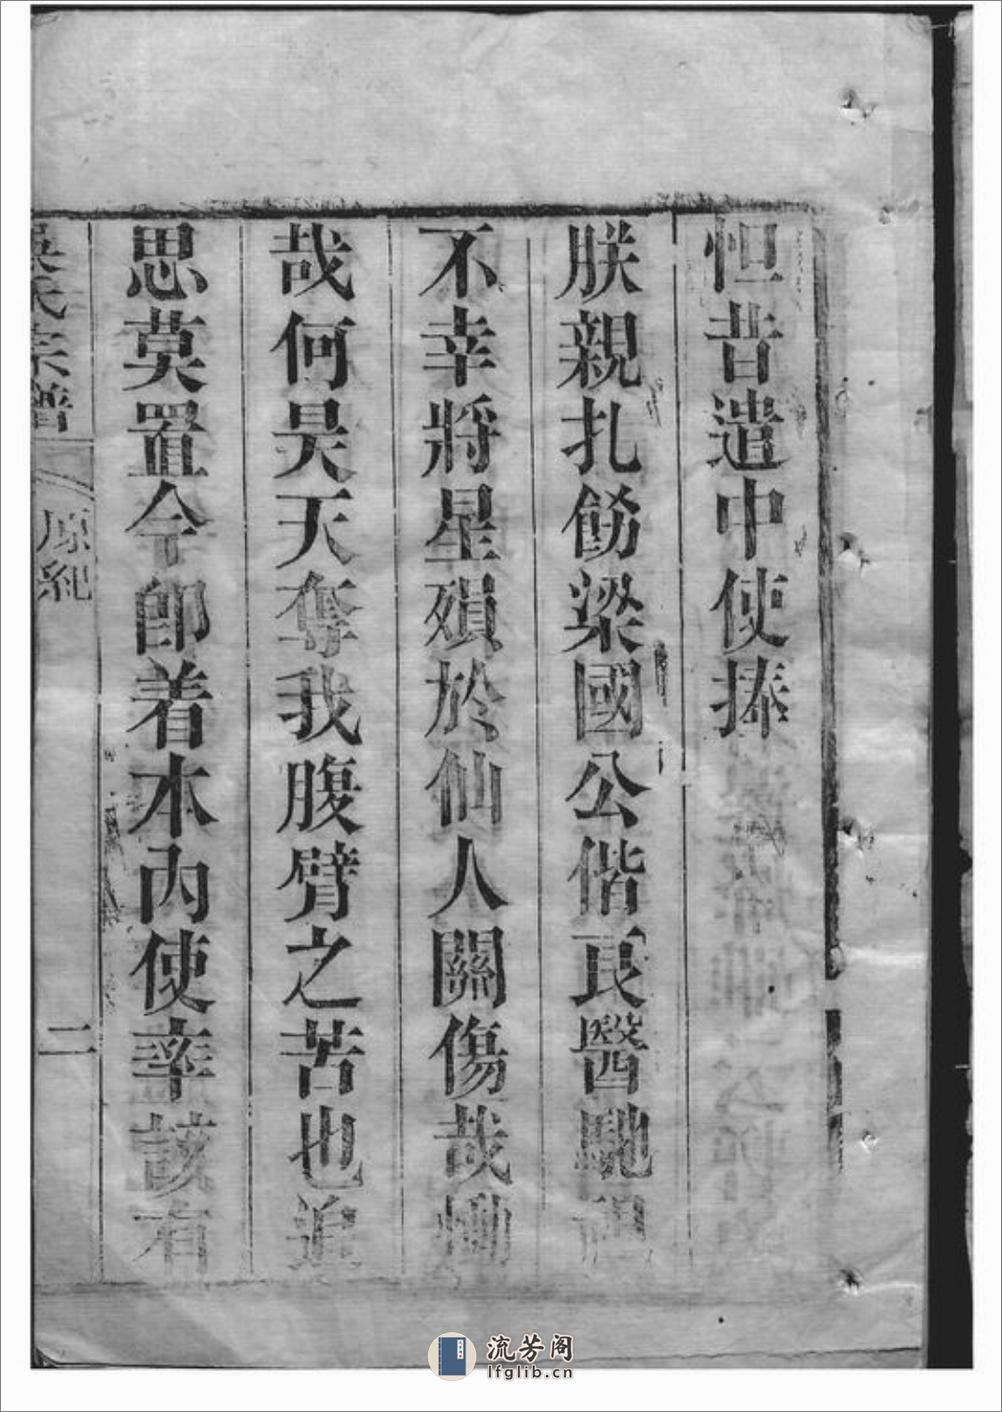 怛昔遣中使捧
朕親扎飭梁國公偕良醫馳視
不幸將星殞於仙人關傷哉慟
哉何昊天奪我腹臂之苦也追
思莫置令卽着本內使率該有
吳氏宗譜 原紀 二
流芳阁
lfglib.cn